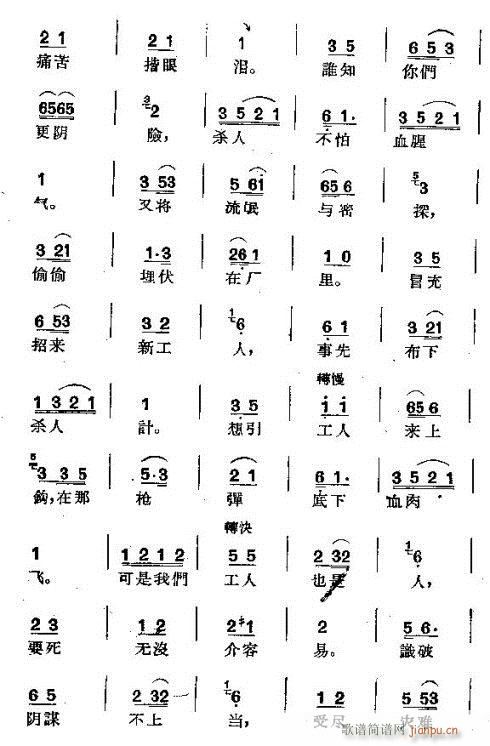 2 1 2 1 1 3 5 6 5 3
痛苦 揩眼 泪。 誰知 你們
6565 3 2 3 5 2 1 6 1. 3 5 2 1
更阴 險, 杀人 不怕 血腥
1 3 53 5 61 65 6 5 3
气。 又将 流氓 与密 探,
3 21 1·3 26 1 1 0 3 5
偷偷 埋伏 在厂 里。 冒充
6 53 3 2 1 6 6 1 3 21
招来 新工 人, 事先 布下
轉慢
1 3 2 1 1 3 5 1 1 65 6
杀人 計。 想引 工人 来上
5 3 3 5 5·3 2 1 6 1· 3 5 2 1
鈎,在那 枪 彈 底下 血肉
轉快
1 1 2 1 2 5 5 2 32 1 6
飞。 可是我們 工人 也是 人,
2 3 1 2 2 #1 2 5 6·
要死 无沒 介容 易。 識破
6 5 2 32 1 6 2 5 53
阴謀 不上 当, 受尽 灾难
歌谱简谱网 jianpu.cn